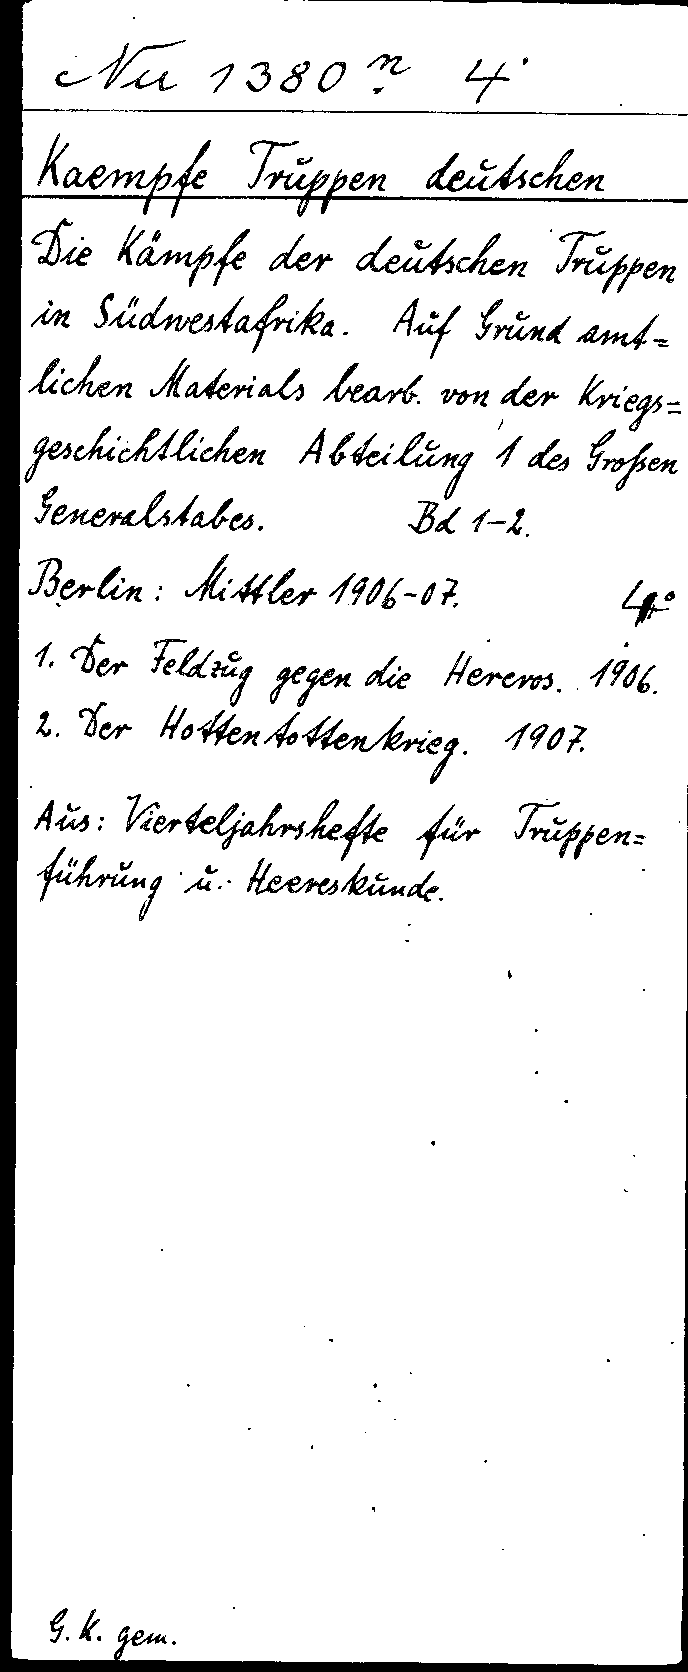 Nu 1380 n 4°
Kaempfe Truppen deutschen
Die Kämpfe der deutschen Truppen
in Südwestafrika. Auf Grund amt=
lichen Materials bearb. von der Kriegs=
geschichtlichen Abteilung 1 des Großen
Generalstabes. Bd 1-2.
Berlin: Mittler 1906-07. 4°
1. Der Feldzug gegen die Hereros. 1906.
2. Der Hottentottenkrieg. 1907.
Aus: Vierteljahrshefte für Truppen=
führung u. Heereskunde.
G. K. gem.